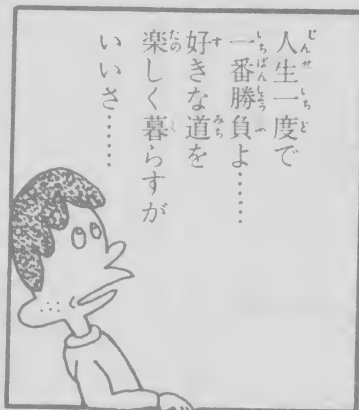 人生一度で
一番勝負よ……
好きな道を
楽しく暮らすが
いいさ……